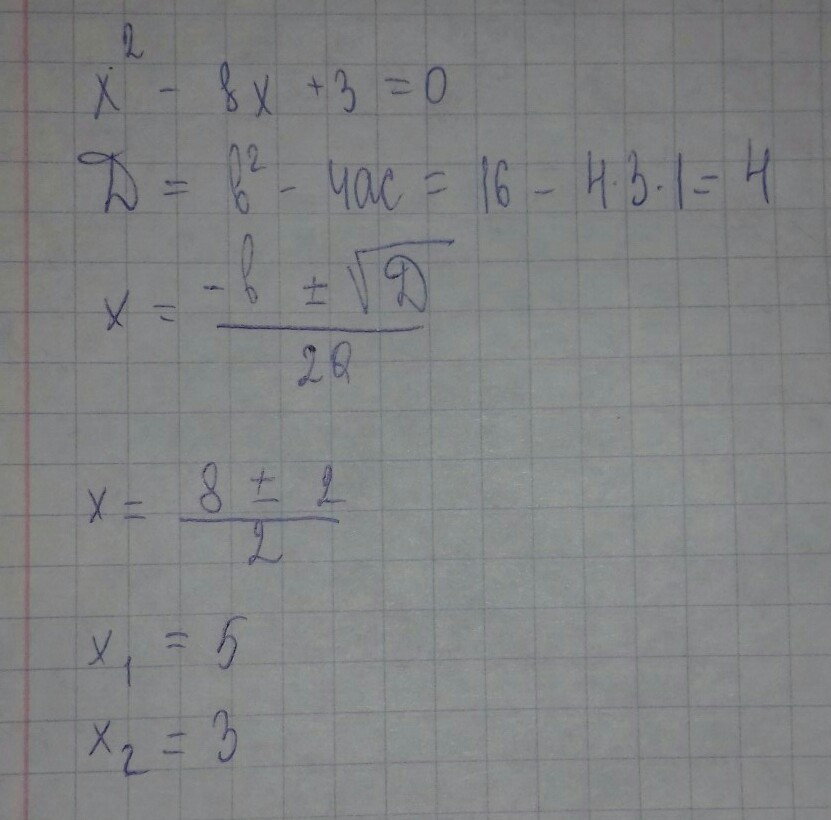 x² - 8x + 3 = 0
D = b² - 4ac = 16 - 4·3·1 = 4
x = (-b ± √D) / 2a
x = (8 ± 2) / 2
x₁ = 5
x₂ = 3